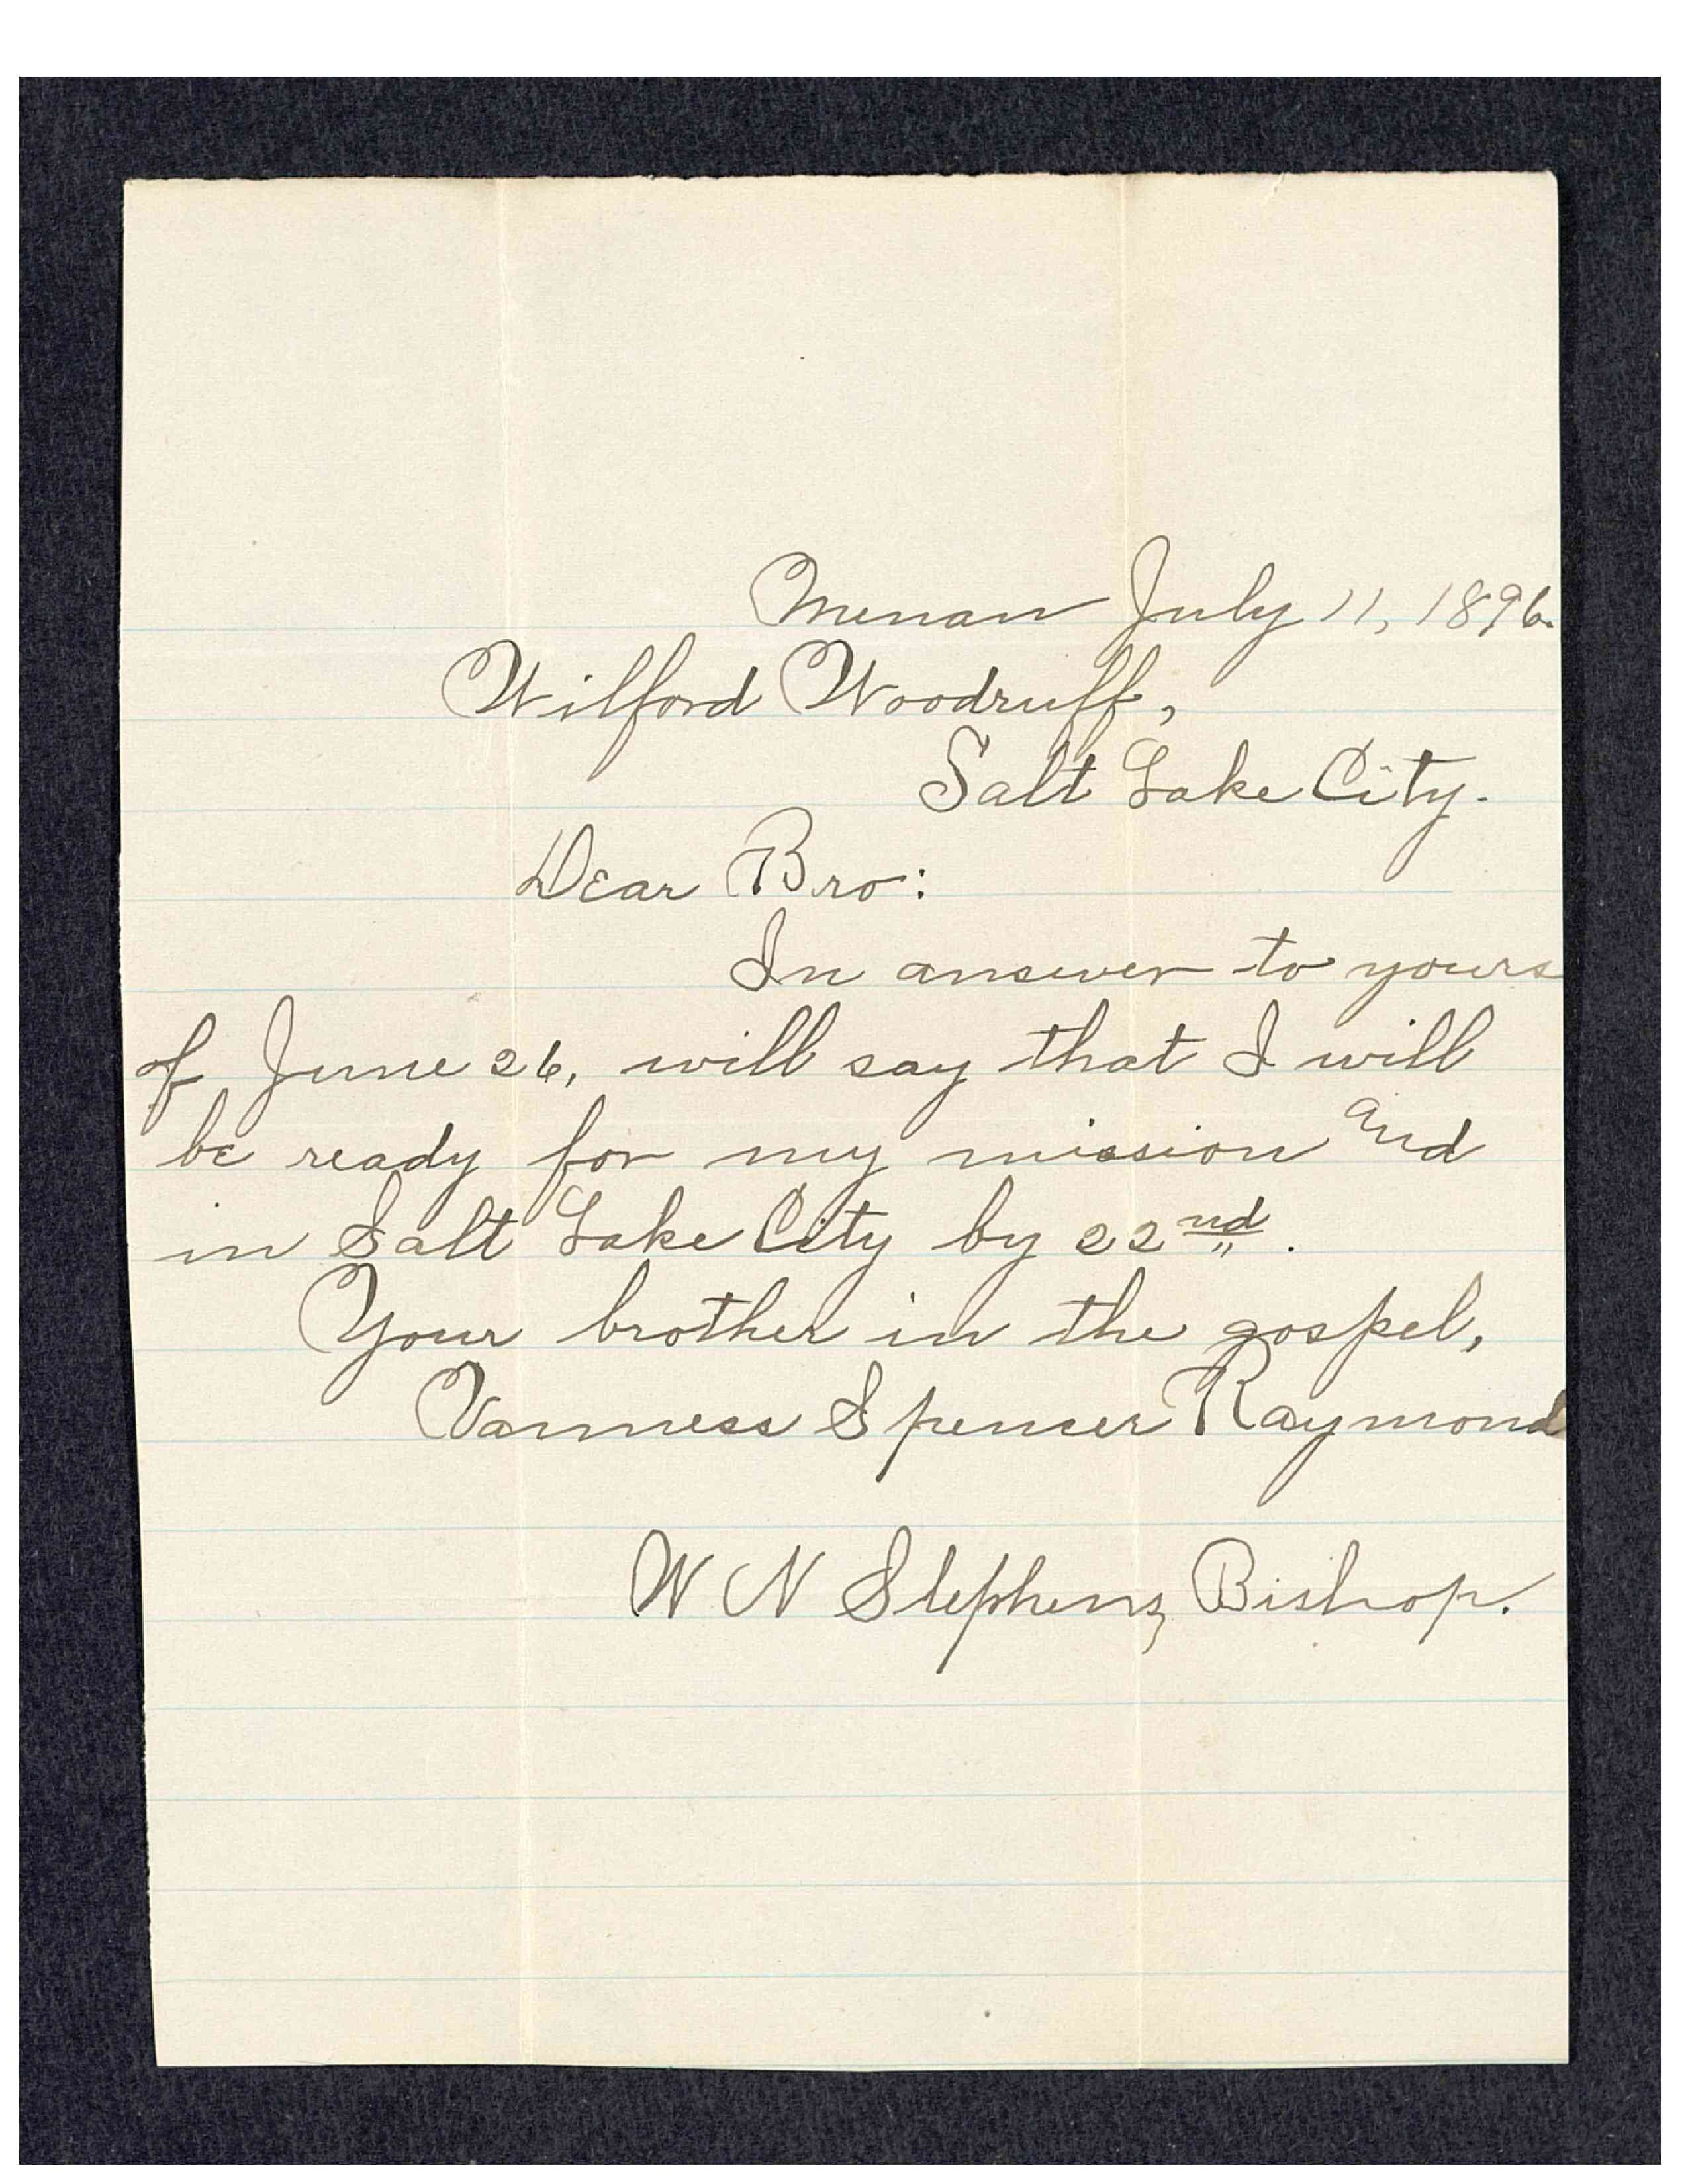 Menan July 11, 1896.
Wilford Woodruff,
Salt Lake City.
Dear Bro:
In answer to yours
of June 26, will say that I will
be ready for my mission and
in Salt Lake City by 22nd.
Your brother in the gospel,
Vanness Spencer Raymond
W N Stephens, Bishop.